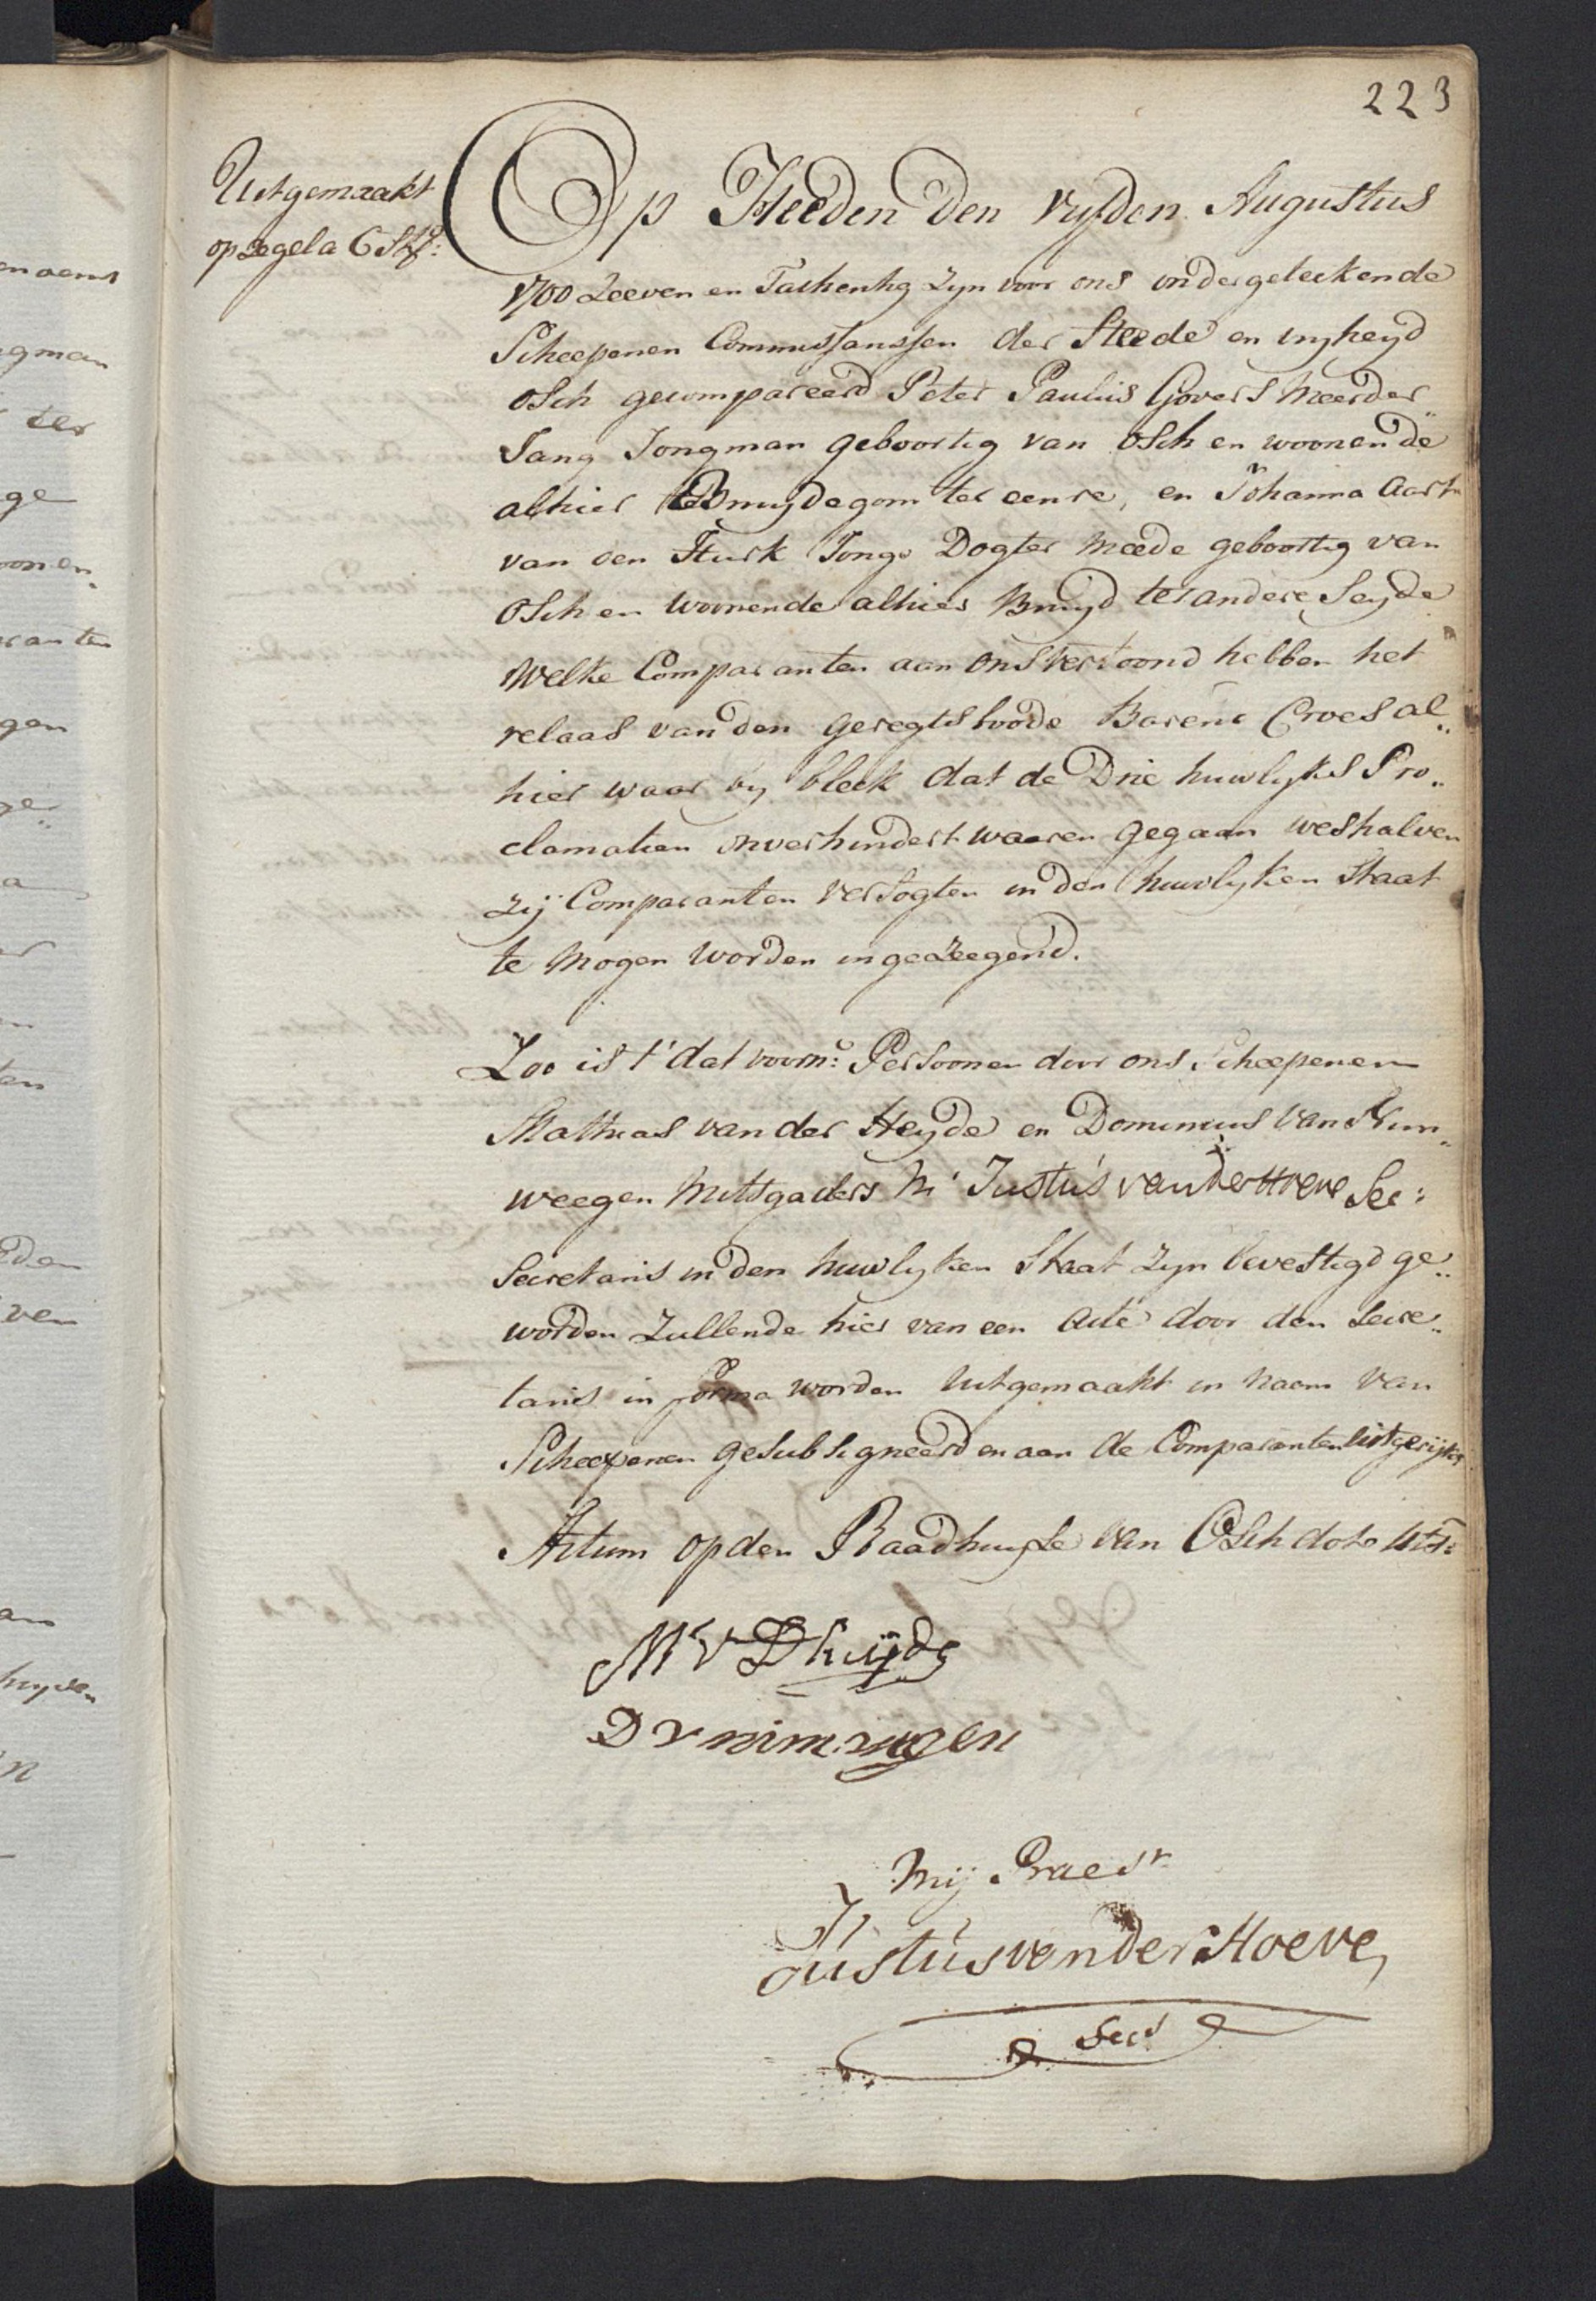 223
Uitgemaakt
op zegel a 6 Str:
Op Heeden den vyfden Augustus
1700 Zeeven en Tachentig zyn voor ons ondergeteekende
Scheepenen Commissarissen der Steede en vryheyd
Osch gecompareerd Peter Paulus Govers Meerder
Jarig Jongman geboortig van Osch en woonende
alhier Bruydegom ter eenre, en Johanna Aart
van den Hurk Jonge Dogter meede geboortig van
Osch en woonende alhier Bruyd ter andere Seyde
Welke Comparanten aan ons vertoond hebben het
relaas van den geregtsboode Barend Croes al„
hier waar by bleek dat de Drie huwlyks Pro„
clamatien onverhindert waaren gegaan weshalven
zij Comparanten versogten in den huwlyken Staat
te mogen worden ingezeegend.
Zoo is t' dat voorn: Persoonen door ons Scheepenen
Mathias van der Heyde en Dominicus van Nim„
weegen Mitsgaders Mr Justus van der Hoeve Sec:
Secretaris in den huwlyken Staat zyn bevestigd ge„
worden Zullende hier van een Acte door den Secre„
taris in forma worden uitgemaakt in naam van
Scheepenen gesubsigneerd en aan de Comparanten uitgerijkt
Actum op den Raadhuyse van Osch dato uts:
M V D heijde
D v nimwegen
Mij Praest
Justus van der Hoeve,
Secs